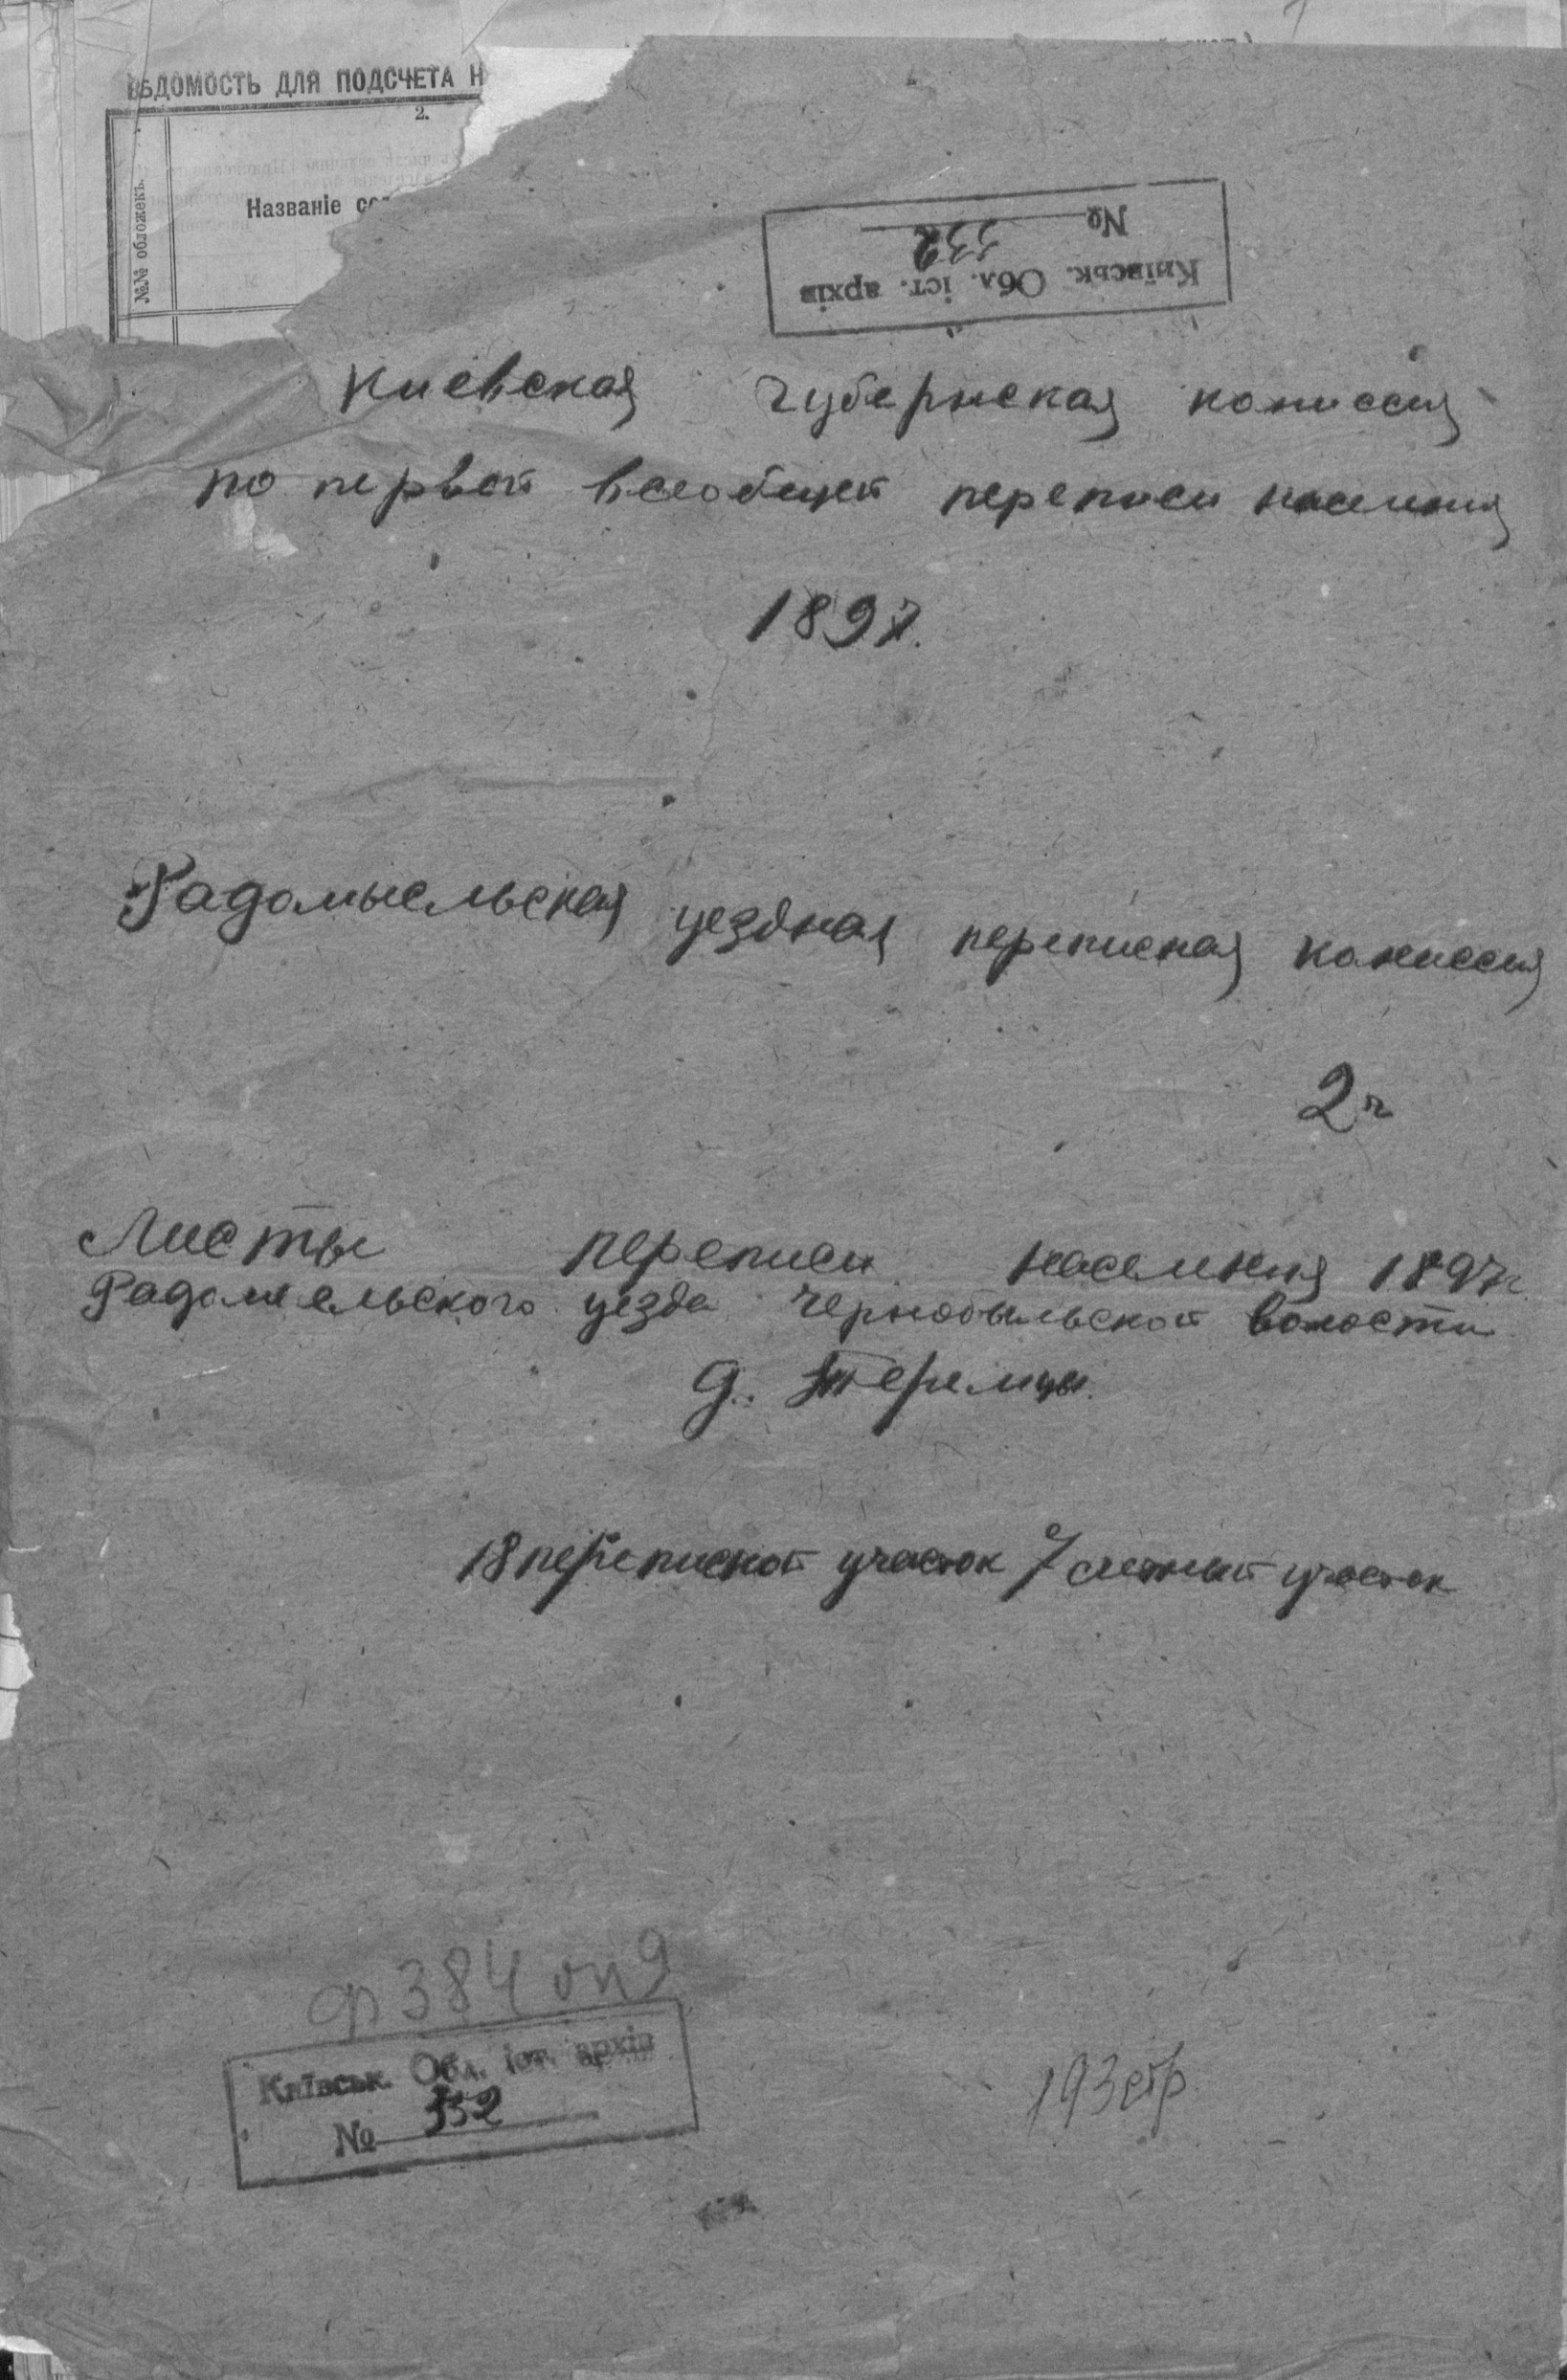 ВѢДОМОСТЬ ДЛЯ ПОДСЧЕТА Н
2.
№№ обложекъ.
Названіе
Київськ. Обл. іст. архів
№ 532
Киевская губернская комиссия
по первой всеобщей переписи населения
1897.
Радомысльская уездная переписная комиссия
2ч
Листы переписи населения 1897г
Радомысльского уезда Чернобыльской волости
д. Теремцы.
18 переписной участок 7 счетный участок
ф 384 оп 9
Київськ. Обл. іст. архів
№ 532
193 стр.